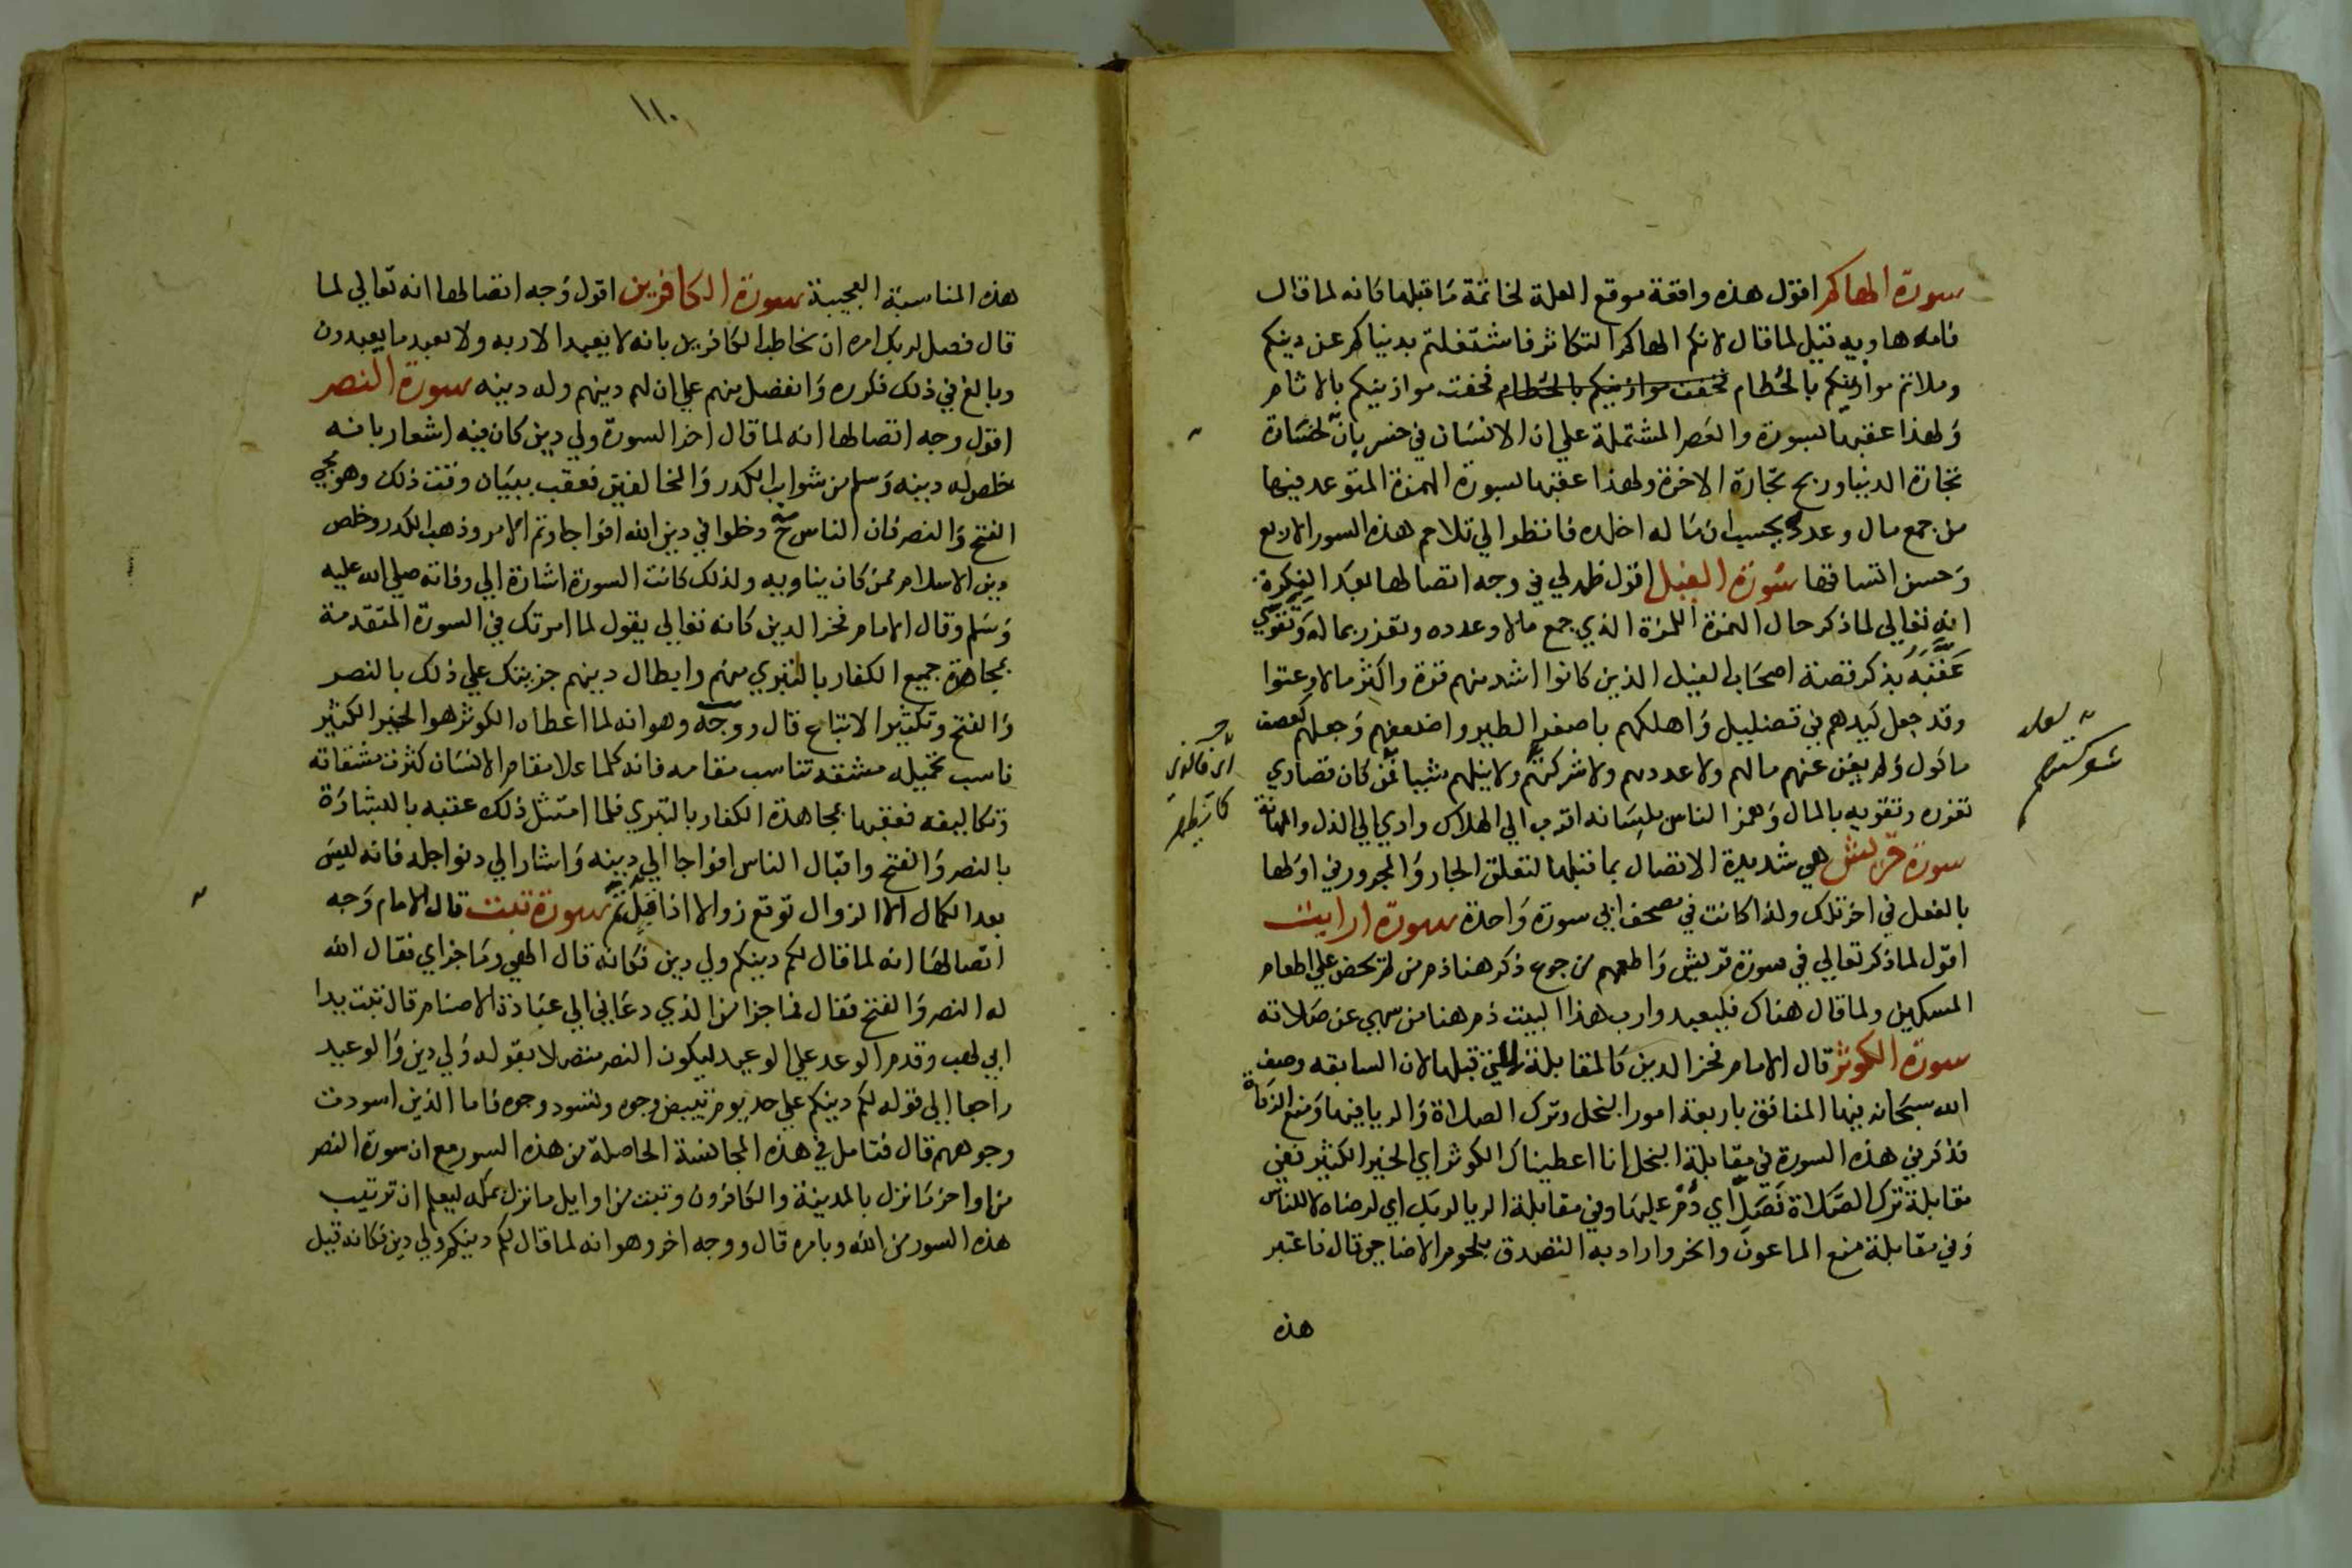 سورة الهاكم اقول هذه واقعة موقع العلة لخاتمة ما قبلها كانه لما قال
فامه هاويه قيل لما قال لانكم الهاكم التكاثر فاشتغلتم بدنياكم عن دينكم
وملاتم موازينكم بالحُطام فخفت موازينكم بالحُطام فخفت موازينكم بالاثام
ولهذا عقبها بسورة والعصر المشتملة علي ان الانسان في خسر بان لخسارة
تجارة الدنيا وربح تجارة الاخرة ولهذا عقبها بسورة الهمزة المتوعد فيها
من جمع مال وعدده يحسب ان ماله اخلده فانظر الي تلاحم هذه السور الاربع
وحسن اتساقها سورة الفيل اقول ظهر لي في وجه اتصالها بعد الفكرة
انه تعالي لما ذكر حال الهمزة اللمزة الذي جمع مالا وعدده وتعزز بماله وتقوي
عَقّبَه بذكر قصة اصحاب الفيل الذين كانوا اشد منهم قوة واكثر مالا وعتوا
وقد جعل كيدهم في تضليل واهلكهم باصغر الطير واضعفهم وجعلهم كعصف
ماكول ولم يغن عنهم مالهم ولا عددهم ولا شركتهم ولا فيلهم شيا فمن كان قصاري
تعززه وتقويه بالمال وهمز الناس بلسانه اقرب الي الهلاك وادي الي الذل والمهانة
سورة قريش هي شديدة الاتصال بما قبلها لتعلق الجار والمجرور في اولها
بالفعل في اخر تلك ولذا كانت في مصحف ابي سورة واحدة سورة ارايت
اقول لما ذكر تعالي في سورة قريش واطعمهم من جوع ذكر هنا ذم من لم يحض علي اطعام
المسكين ولما قال هناك فليعبدوا رب هذا البيت ذم هنا من سهي عن صلاته
سورة الكوثر قال الامام فخر الدين كالمقابلة للتي قبلها لان السابقه وصف
الله سبحانه فيها المنافق باربعة امور البخل وترك الصلاة والريا فيها ومنع الزكاة
فذكر في هذه السورة في مقابلة البخل انا اعطيناك الكوثر اي الخير الكثير وفي
مقابلة ترك الصلاة فصل اي دُم عليها وفي مقابلة الريا لربك اي لرضاه لا للناس
وفي مقابلة منع الماعون وانحر واراد به التصدق بلحوم الاضاحي قال فاعتبر
هذه
لعله
شوكتهم
١١٠
هذه المناسبة العجيبة سورة الكافرين اقول وجه اتصالها انه تعالي لما
قال فصل لربك امره ان يخاطب الكافرين بانه لا يعبد الا ربه ولا يعبد ما يعبدون
وبالغ في ذلك فكرره وانفصل منهم علي ان لهم دينهم وله دينه سورة النصر
اقول وجه اتصالها انه لما قال اخر السورة ولي دين كان فيه اشعار بانه
خلص له دينه وسلم من شوايب الكدر والمخالفين فعقب ببيان وقت ذلك وهو مجي
الفتح والنصر فان الناس دخلوا في دين الله افواجا وتم الامر وذهب الكدر وخلص
دين الاسلام ممن كان يناويه ولذلك كانت السورة اشارة الي وفاته صلي الله عليه
وسلم وقال الامام فخر الدين كانه تعالي يقول لما امرتك في السورة المتقدمة
بمجاهدة جميع الكفار بالتبري منهم وابطال دينهم جزيتك علي ذلك بالنصر
والفتح وتكثير الاتباع قال ووجه وهو انه لما اعطاه الكوثر هو الخير الكثير
ناسب تحميله مشقه تناسب مقامه فانه كلما علا مقام الانسان كثرت مشقاته
وتكاليفه فعقبها بمجاهدة الكفار بالتبري فلما امتثل ذلك عقبه بالبشارة
بالنصر والفتح واقبال الناس افواجا الي دينه واشار الي دنو اجله فانه ليس
بعد الكمال الا الزوال توقع زوالا اذا قيل تم سورة تبت قال الامام وجه
اتصالها انه لما قال لكم دينكم ولي دين فكانه قال الهي وما جزاي فقال الله
له النصر والفتح فقال فما جزا من الذي دعاني الي عبادة الاصنام قال تبت يدا
ابي لهب وقدم الوعد علي الوعيد ليكون النصر متصلا بقوله ولي دين والوعيد
راجعا الي قوله لكم دينكم علي حد يوم تبيض وجوه وتسود وجوه فاما الذين اسودت
وجوههم قال فتامل في هذه المجانسة الحاصلة من هذه السور مع ان سورة النصر
من اواخر ما نزل بالمدينة والكافرون وتبت من اوايل ما نزل بمكه ليعلم ان ترتيب
هذه السور من الله وبامره قال ووجه اخر وهو انه لما قال لكم دينكم ولي دين فكانه قيل